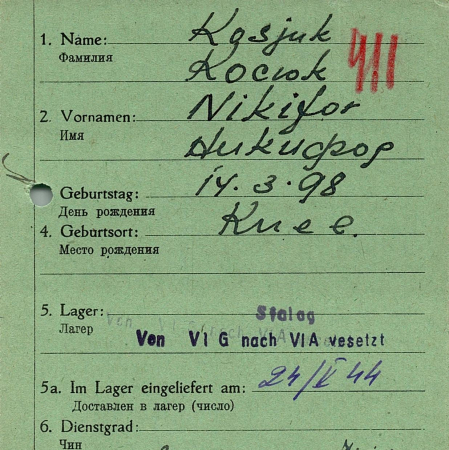 1. Name: Kosjuk
Фамилия Косюк
411
2. Vornamen: Nikifor
Имя Никифор
Geburtstag: 14.3.98
День рождения
4. Geburtsort: Киев.
Место рождения
5. Lager: Stalag
Лагер
Von VI G nach VIA vesetzt
5a. Im Lager eingeliefert am: 24/V 44
Доставлен в лагер (число)
6. Dienstgrad:
Чин